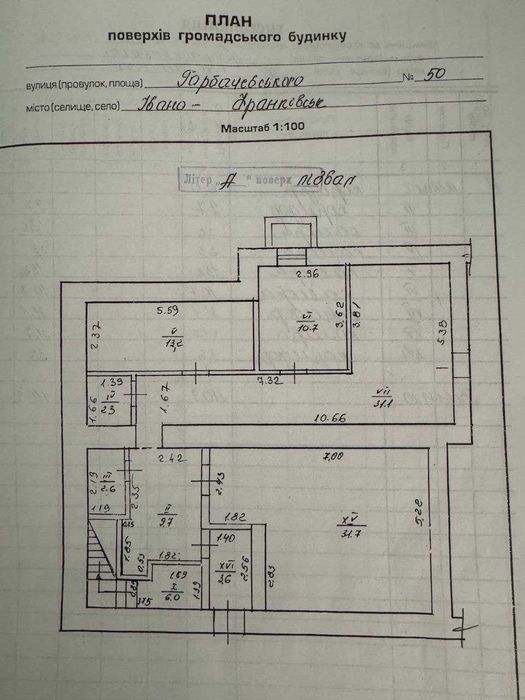 ПЛАН
поверхів громадського будинку
вулиця (провулок, площа) Горбачевського № 50
місто (селище, село) Івано-Франківськ
Масштаб 1:100
Літер „А“ поверх підвал
2.96
5.59
VI
10.7
3.62
3.81
2.37
V
13,2
5.38
1.39
7.32
1.66
IV
2.3
1.67
VII
31.1
10.66
2.42
7,00
2.19
III
2.6
2.35
2.43
1.19
II
9.7
5,28
1.82
XV
31.7
1.85
0.53
1.82
1.40
XVI
3.6
2.56
2.83
1.69
I
6.0
1.39